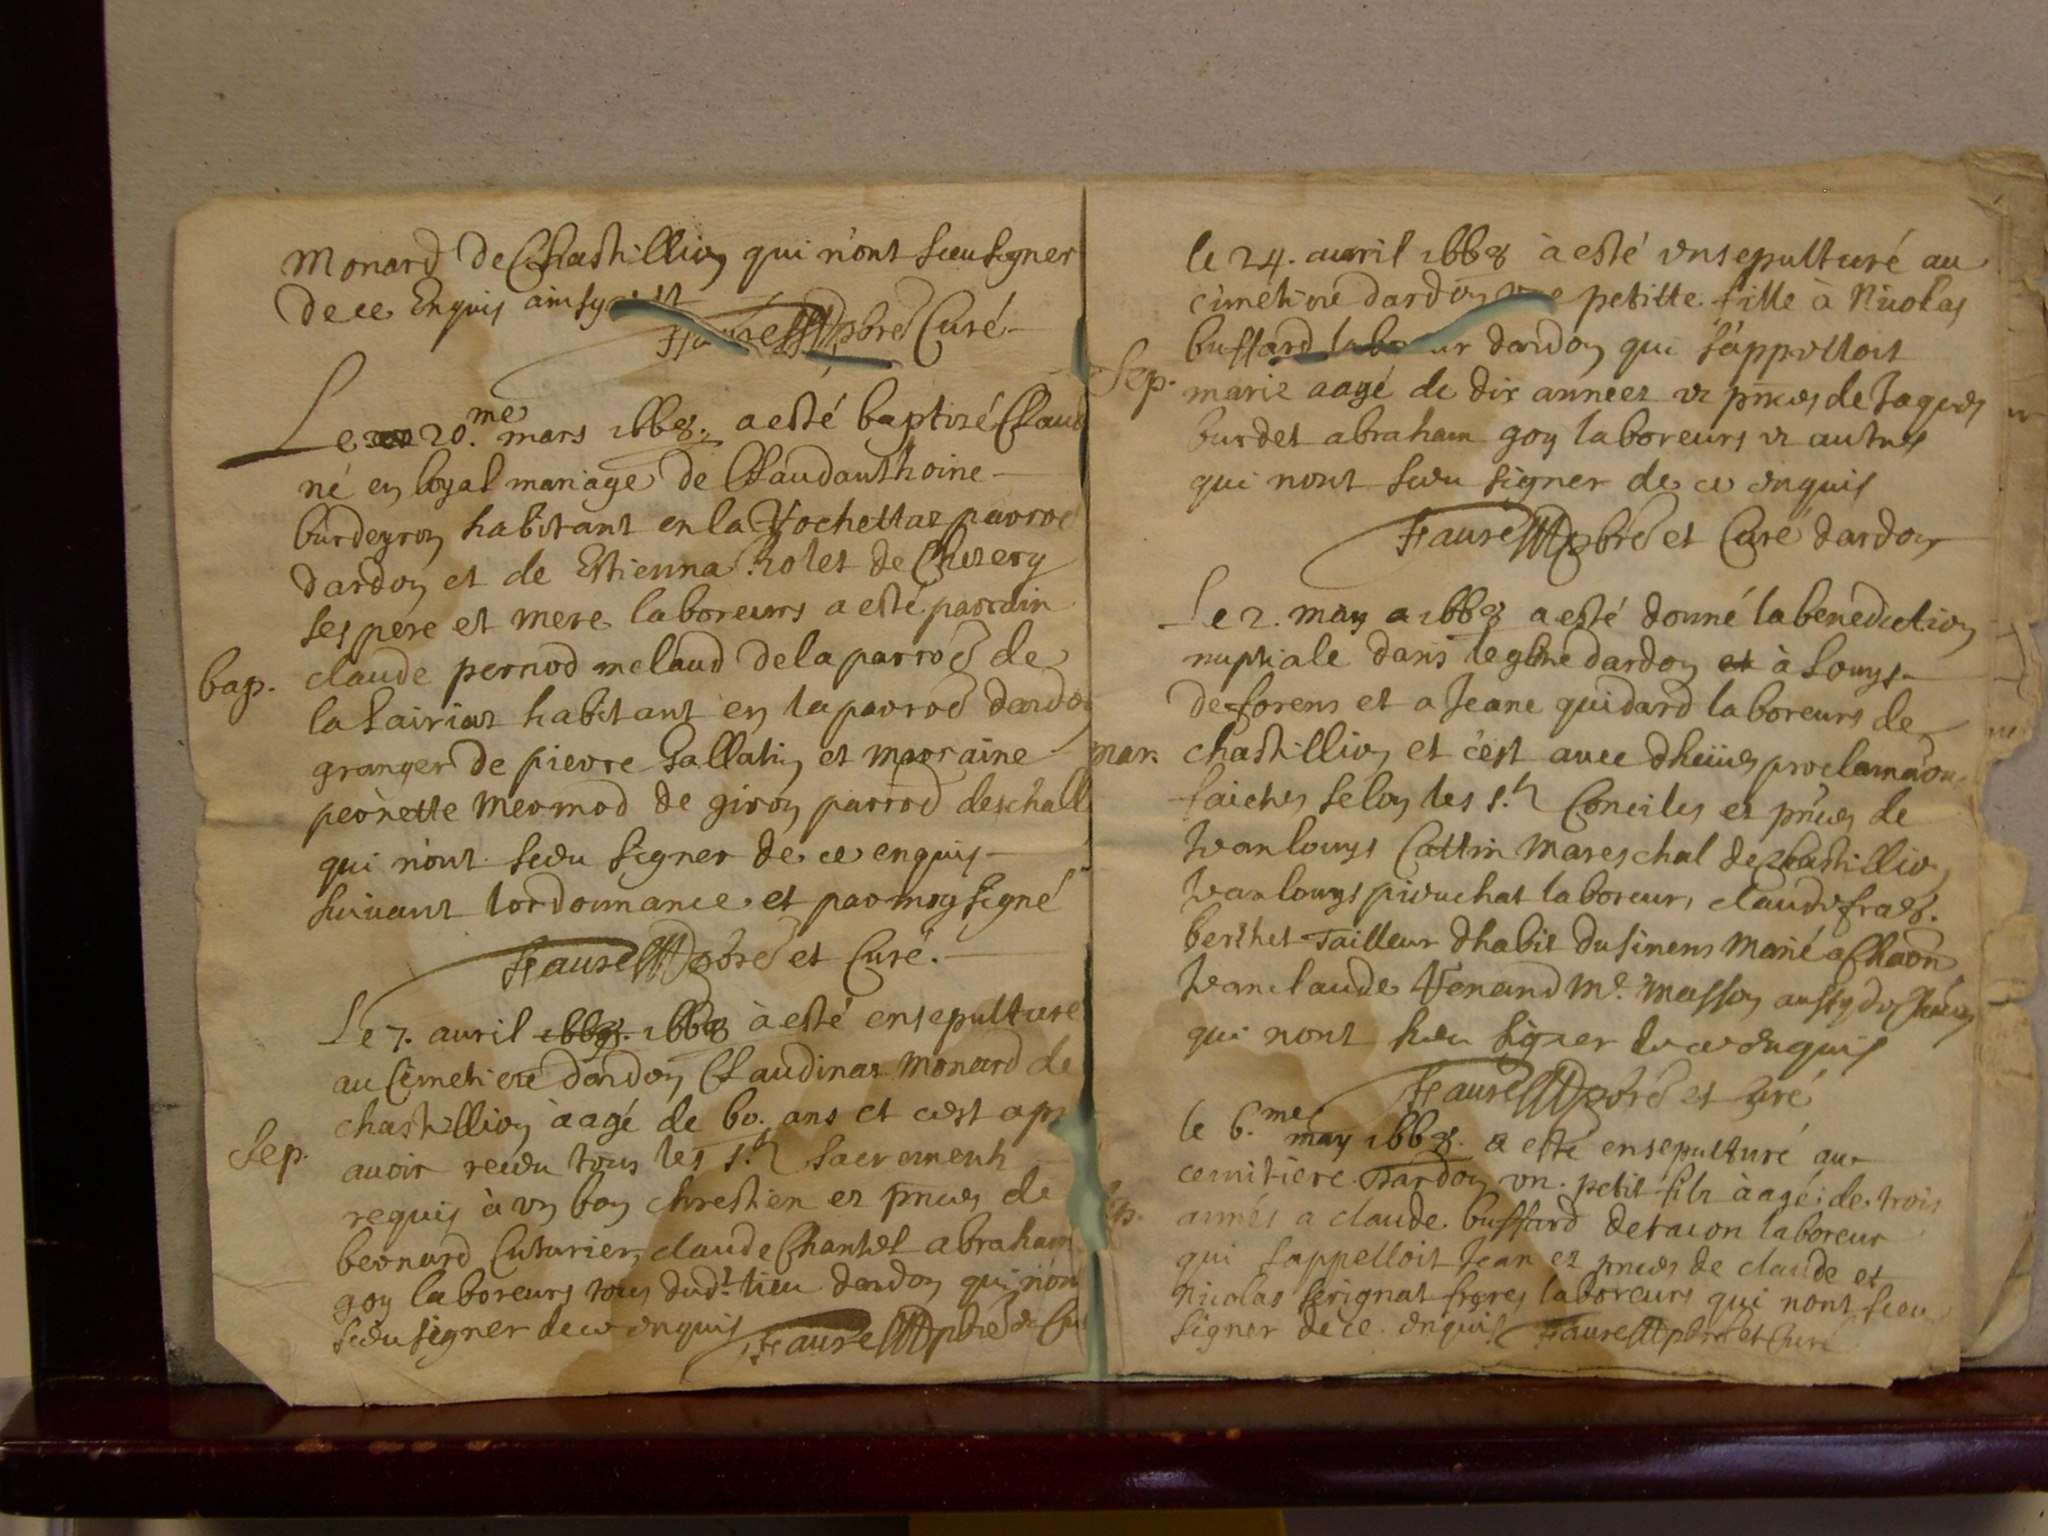 Monard de Chastillion qui n'ont sceu signer
de ce Enquis ainsy
Faure pbre Curé
Le 20.me mars 1668. a esté baptizé Claud
né en loyal mariage de Claudanthoine
burdeyron habitant en la Rochettaz parroe
dardon et de Estienna Rolet de Chezery
ses pere et mere laboreurs a esté parrain
bap. claude pernod melaud de la parroe de
la Lairiaz habitant en la parroe dardon
granger de pierre Gallatin et marraine
peonette Mermod de giron parroe deschall
qui n'ont sceu signer de ce enquis
suivant lordonnance et par moy signé
Faure pbre et Curé.
Le 7. avril 1668. 1668 à esté ensepulture
au Cemetiere dardon Claudinaz Monard de
chastillion àagé de 60. ans et cest apr
Sep. avoir receu tous les s.ts Sacrements
requis à un bon chrestien ez pnces de
bernard Cuturier, claude Chantel abraham
goy laboreurs tous dudt. lieu dardon qui n'on
sceu signer de ce enquis Faure pbre et Cur
le 24. auvril 1668 à esté ensepulturé au
cimetiere dardon une petitte fille à Nicolas
buffard laboreur dardon qui s'appelloit
Sep. marie aagé de dix annees ez pnces de Jaques
burdet abraham goy laboreurs et autres
qui nont sceu signer de ce enquis
Faure pbre et Curé dardon
Le 2. may a 1668 a esté donné la benediction
nuptiale dans leglise dardon et à Louys
deforens et a Jeane quidard laboreurs de
mar. chastillion et c'est avec dheües proclamaon
faictes selon les s.ts Conciles ez pnces de
Jeanlouys Cattin Mareschal de Chastillion
Jeanlouys pieuchat laboreur, claude frans.
berthet Tailleur dhabit du simens Marié a Chaon
Jeanclaude Venand Me. Masson aussy de
qui nont sceu signer de ce enquis
Faure pbre et Curé
le 6.me may 1668. a esté ensepulturé au
cemitiere dardon un petit fils àagé de trois
Sep. années a claude buffard de tacon laboreur
qui sappelloit Jean ez pnces de claude et
Nicolas serignat freres laboreurs qui nont sceu
signer de ce enquis Faure pbre et Curé